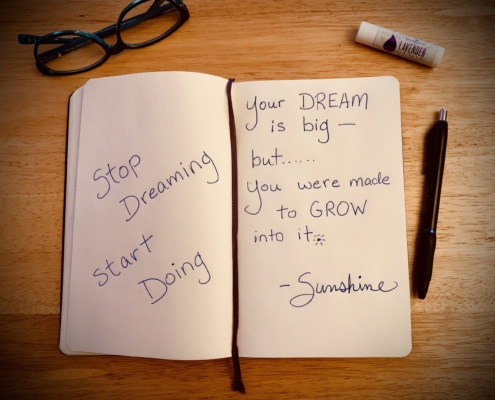 Stop
Dreaming
start
Doing
your DREAM
is big —
but......
you were made
to GROW
into it.
- Sunshine
LAVENDER